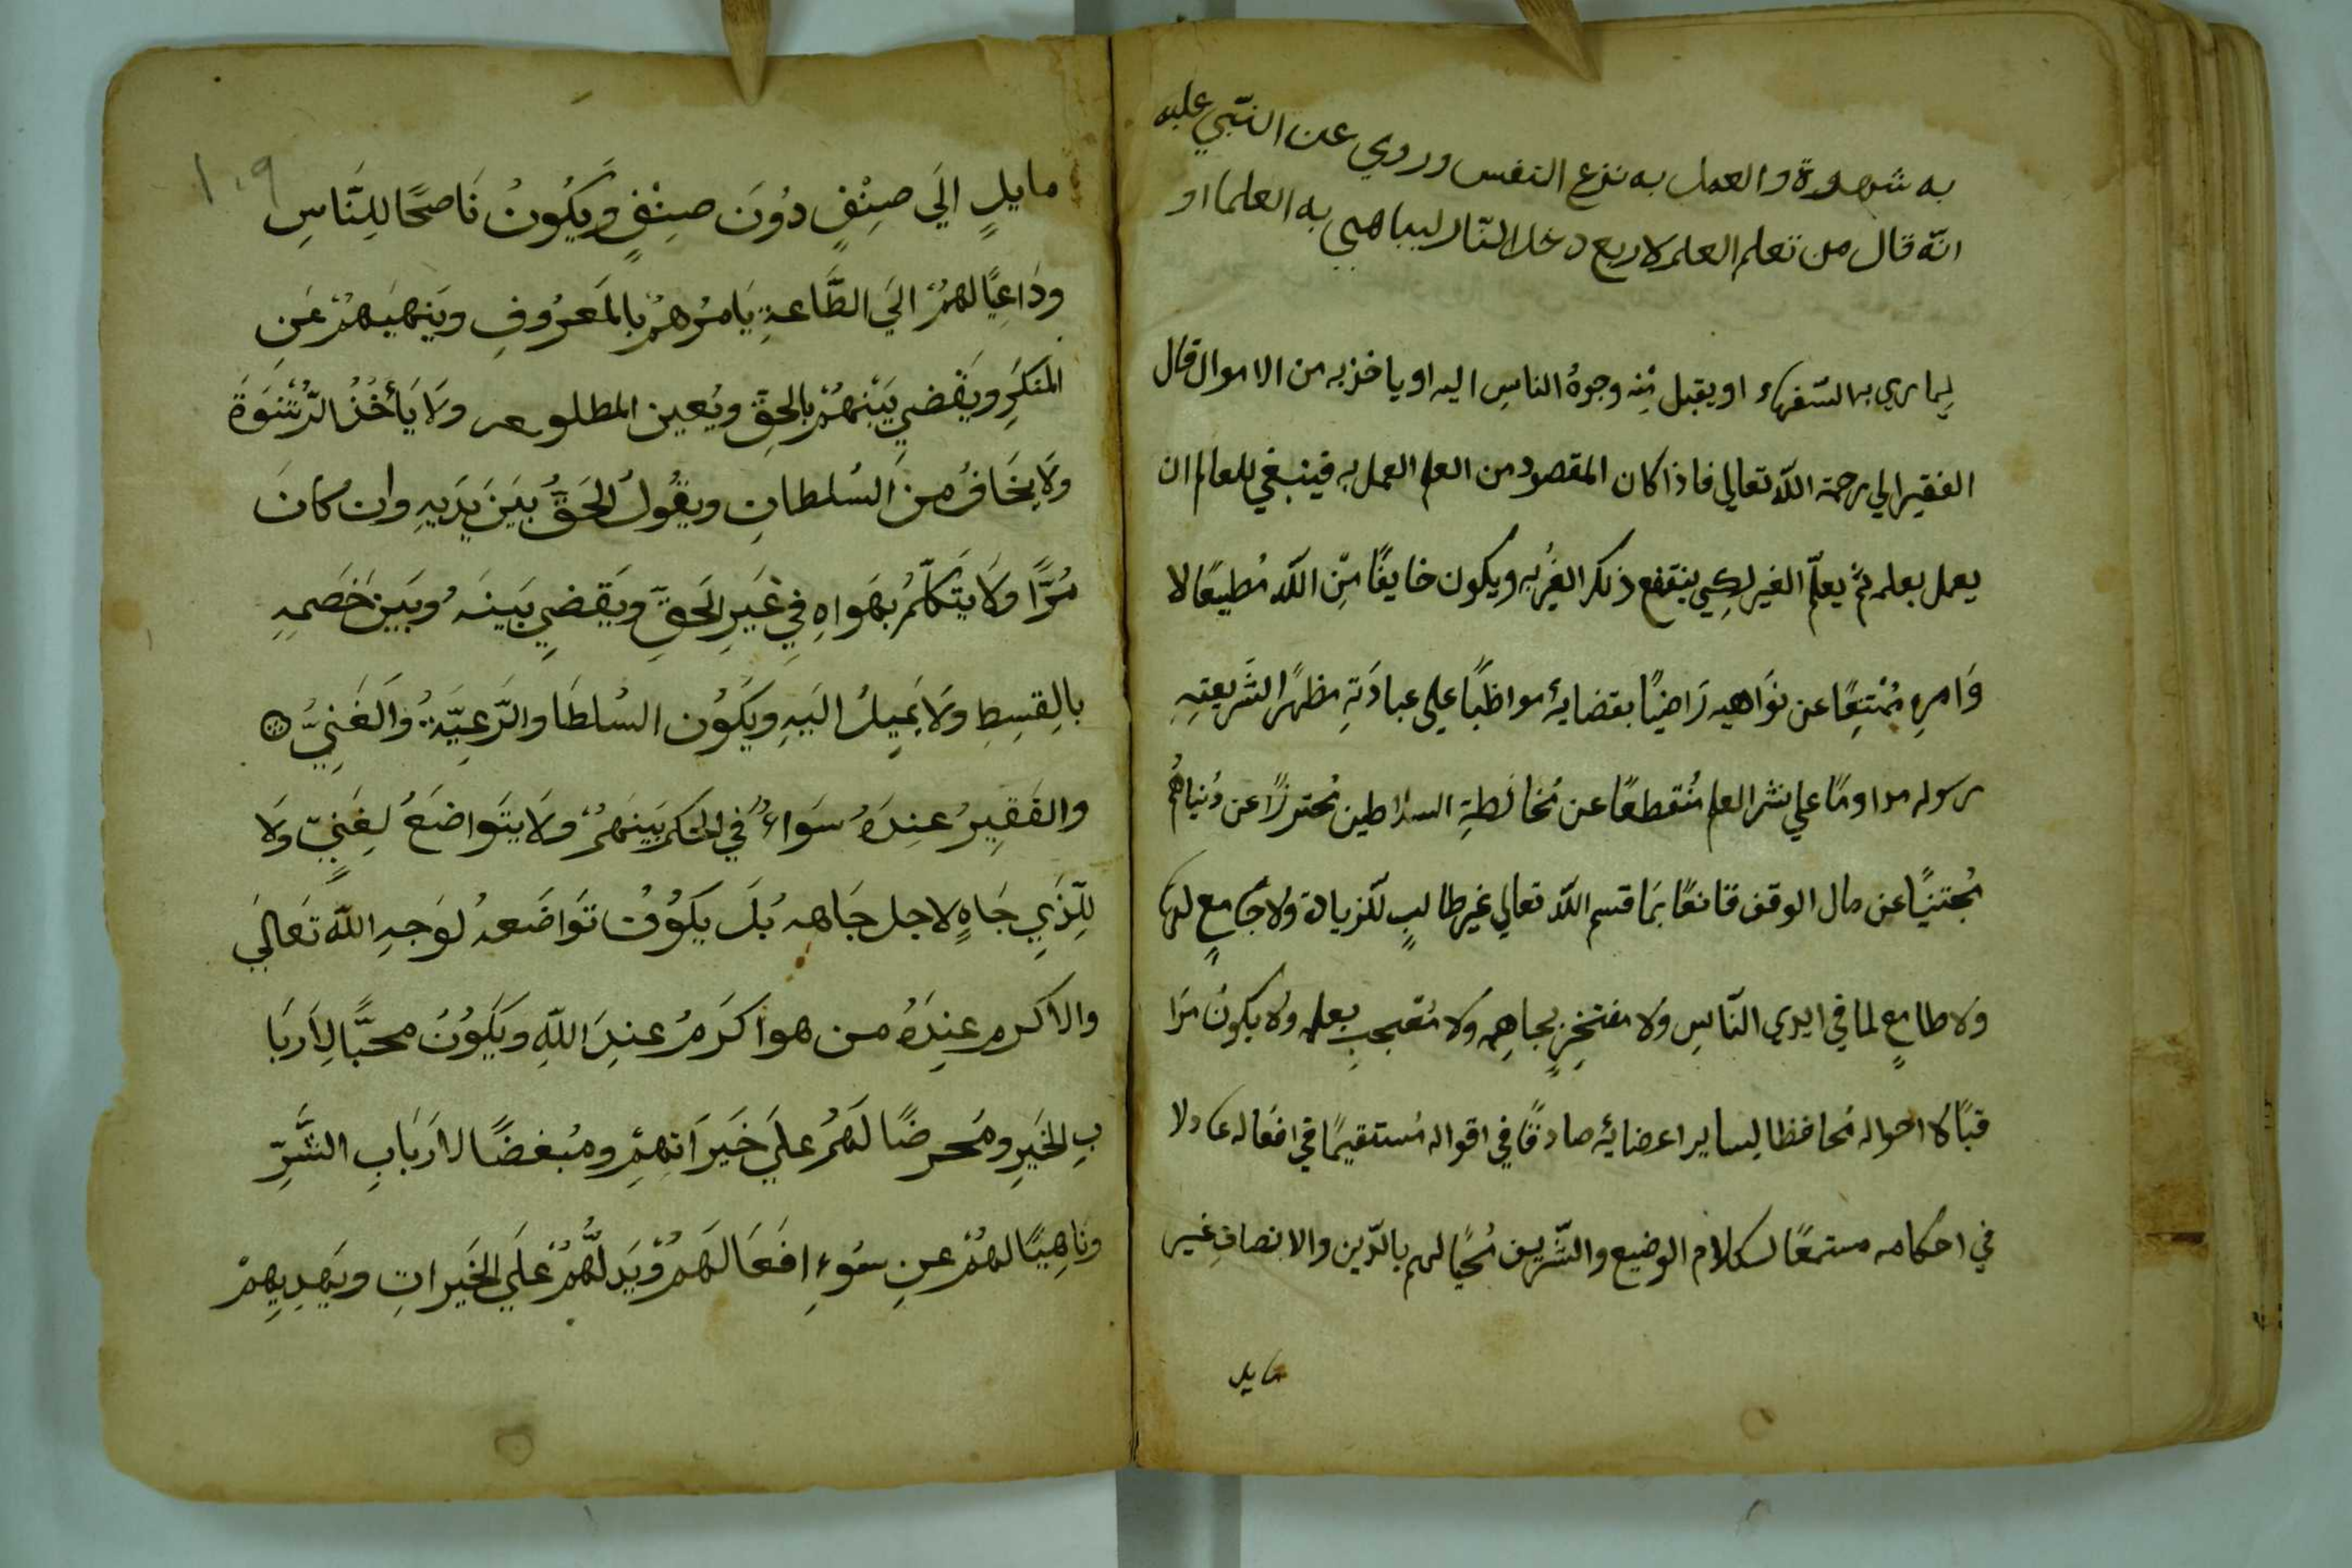 به شهوة والعمل به نزع النفس وروي عن النّبي عليه
انّه قال من تعلم العلم لاربع دخل النّار ليباهي به العلما او
لِيماري به السّفهاء او يقبل بِه وجوهُ الناسِ اليه او ياخذ به من الاموال قال
الفقير الي رحمة اللّه تعالي فاذا كان المقصود من العلم العمل به فينبغي للعالم ان
يعمل بعلمه ثمّ يعلّم الغير لِكي ينتفع ذلك الغيرُ به ويكون خايفًا مّن اللّه مُطيعًا لا
وَامرِه مُمْتنِعًا عن نوَاهيه رَاضيًا بقضايهٔ مواظبًا علي عبادَتهِ مظهرًا لشَريعتِهِ
رسوله مداومًا علي نشر العلم مُنقطعًا عن مُخالَطةِ السلاطين مُحترزًا عن دُنياهُم
مُجتنبًا عن مال الوقف قانعًا بمَا قسم اللّه تعالي غير طالبٍ للّزيادة ولا جَامعٍ لها
وَلا طامعٍ لما في ايدي النّاسِ وَلا مفتخِرٍ بجاهِه وَلا مُعجبِ بعلمه ولا يكونُ مرَا
قبًا لاحواله مُحافظا لِساير اعضايهٔ صادقًا في اقواله مُستقيمًا في افعَاله عادلا
في احكامه مستمعًا لكلام الوضيع والشّريف مُحبًا لهم بالدّين والانصافِ غير
مايل
١٠٩
مايلٍ الَي صِنْفٍ دُونَ صِنْفٍ وَيَكُونُ نَاصحًا لِلنَّاسِ
ودَاعِيًا لهُمْ اليَ الطَّاعةِ يَامرُهمْ بالمَعرُوفِ وَيَنهيَهُمْ عَنِ
المنكَرِ وَيَقْضيِ بَيْنهُمْ بِالحقِّ ويُعين المظلوم ولَا يَأخُذُ الرّشْوَةَ
ولَا يَخَافُ مِنَ السُلطانِ ويقُولُ الحَقَّ بَيْنَ يَدَيهِ وان كانَ
مُرًّا وَلَا يتكَلّمُ بهَواهِ فِي غَيرِ الحَقِّ ويَقضيِ بَينَهُ وبَينَ خَصمِهِ
بالِقسِطِ ولَا يَمِيلُ اليَهِ ويَكُون السُلطَا والرَّعِيَّةُ وَالغَنِيُّ
والفَقِيرُ عِندَهُ سَوَاءٌ في الحُكم بَينَهمُ وَلَا يتَواضَعَ لِغَنِيٍّ وَلَا
لِلّذِي جَاهٍ لاجل جَاهه بَل يَكُونُ تَوَاضَعهُ لوَجهِ اللّه تَعاليَ
والاكرم عِندَهُ من هو اكرَمُ عندَ اللّهِ ويَكُونُ محبًّا لِاَربَا
بِ الخَيرِ ومُحرضًا لَهُمْ علَي خَيرَاتِهِمْ ومُبغضًا لارَبَابِ الشَّرِّ
ونَاهِيًا لهُمْ عنِ سُوءِ افعَالَهمْ وَيَدلُّهُمْ عَلَي الخَيراتِ ويَهدِيهِمْ